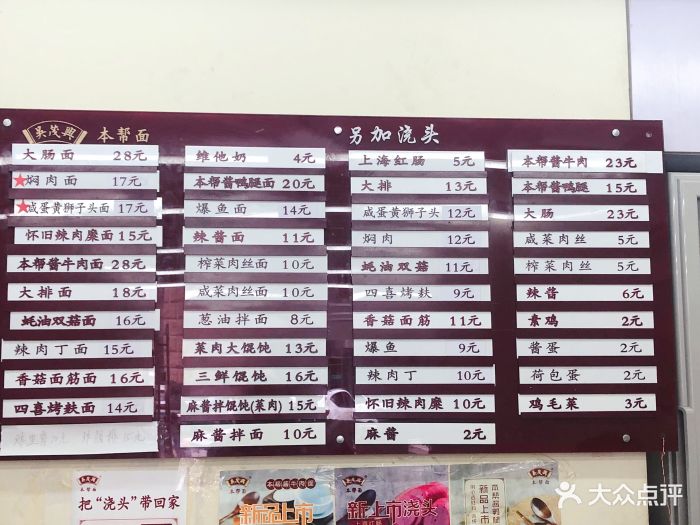 吴茂興 本帮面
大肠面 28元
★焖肉面 17元
★咸蛋黄狮子头面 17元
怀旧辣肉糜面 15元
本帮酱牛肉面 28元
大排面 18元
蚝油双菇面 16元
辣肉丁面 15元
香菇面筋面 16元
四喜烤麸面 14元
维他奶 4元
本帮酱鸭腿面 20元
爆鱼面 14元
辣酱面 11元
榨菜肉丝面 10元
咸菜肉丝面 10元
葱油拌面 8元
菜肉大馄饨 13元
三鲜馄饨 16元
麻酱拌馄饨(菜肉) 15元
麻酱拌面 10元
另加浇头
上海红肠 5元
大排 13元
咸蛋黄狮子头 12元
焖肉 12元
蚝油双菇 11元
四喜烤麸 9元
香菇面筋 11元
爆鱼 9元
辣肉丁 10元
怀旧辣肉糜 10元
麻酱 2元
本帮酱牛肉 23元
本帮酱鸭腿 15元
大肠 23元
咸菜肉丝 5元
榨菜肉丝 5元
辣酱 6元
素鸡 2元
酱蛋 2元
荷包蛋 2元
鸡毛菜 3元
吴茂興
本帮面
把"浇头"带回家
本帮面
本帮酱牛肉面
新品上市
吴茂興
本帮面
新上市浇头
上海红肠
本帮面
本帮酱鸭腿
新品上市
大众点评